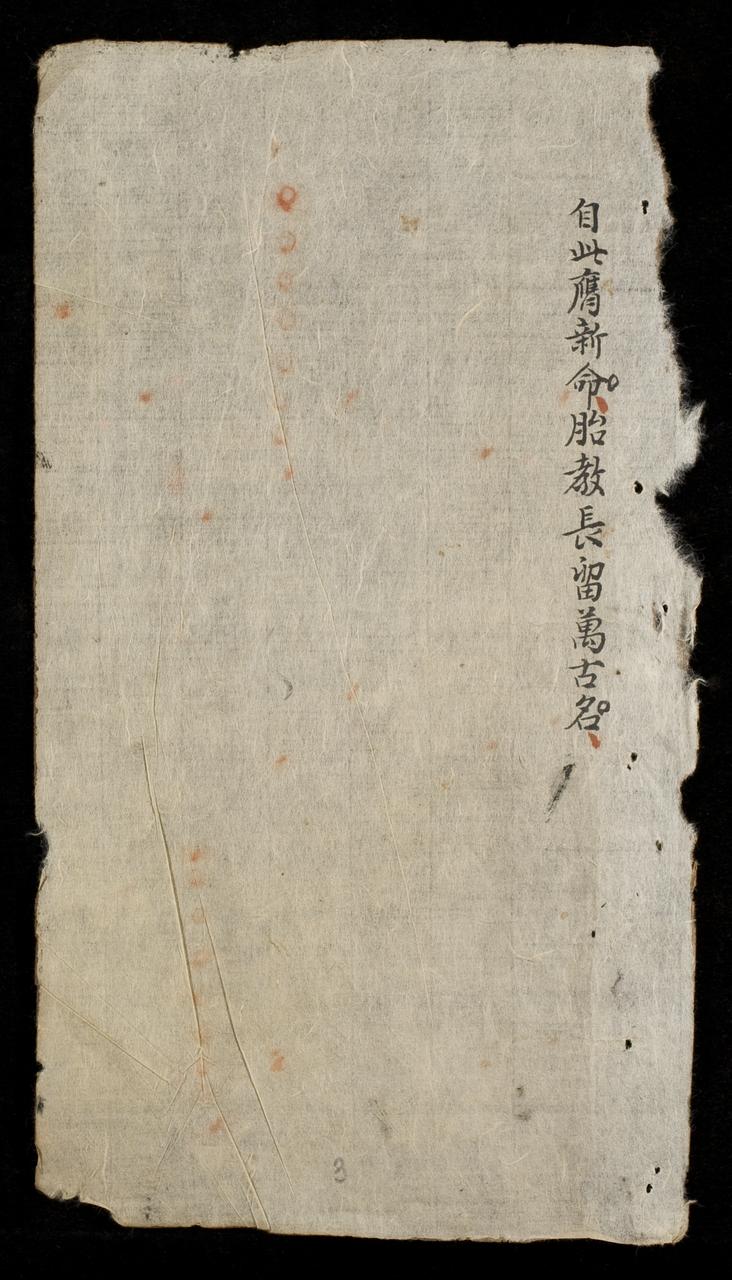 自此膺新命胎教長留萬古名
3